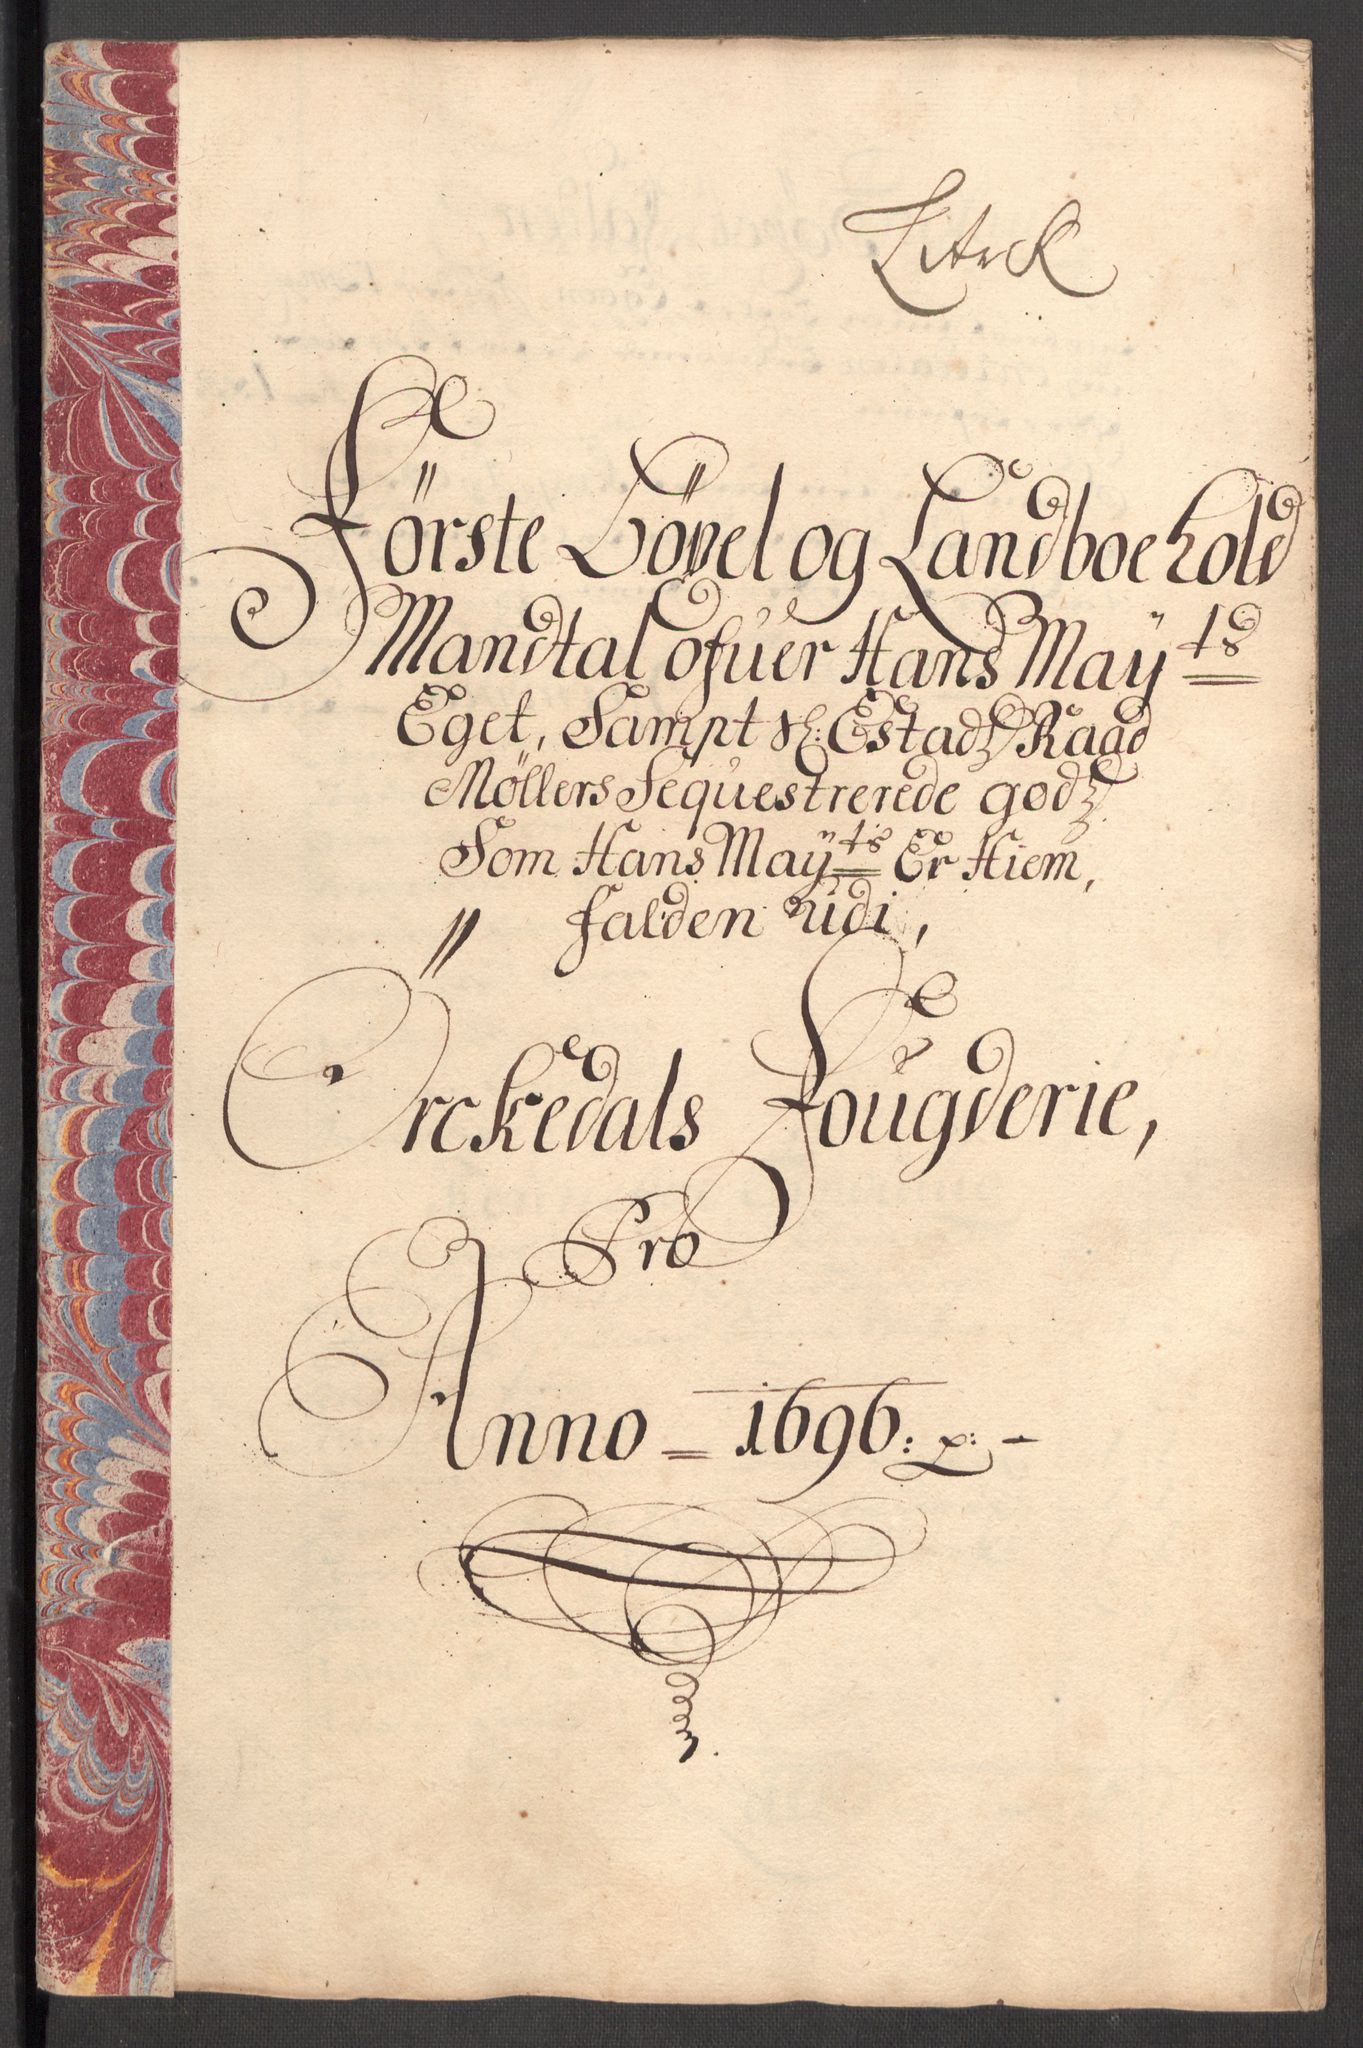 Litr K
Förste Böxel og Landboehold
Mandtal ofuer Hans Maÿts
Eget, Sampt Sl: Estadz Raad
Møllers Sequestrerede godz
Som Hans Maÿts Er Hiem,
falden udi,
Orckedals Fougderie,
Pro
Anno = 1696: